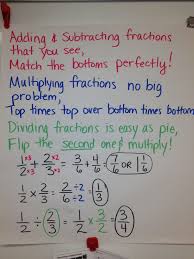 Adding & Subtracting fractions
that you see,
Match the bottoms perfectly!
Multiplying fractions no big
problem,
Top times top over bottom times bottom
Dividing fractions is easy as pie,
Flip the second one & multiply!
1/2 ×3/×3 + 2/3 ×2/×2 = 3/6 + 4/6 = 7/6 OR 1 1/6
1/2 × 2/3 = 2/6 ÷2/÷2 = 1/3
1/2 ÷ 2/3 = 1/2 × 3/2 = 3/4